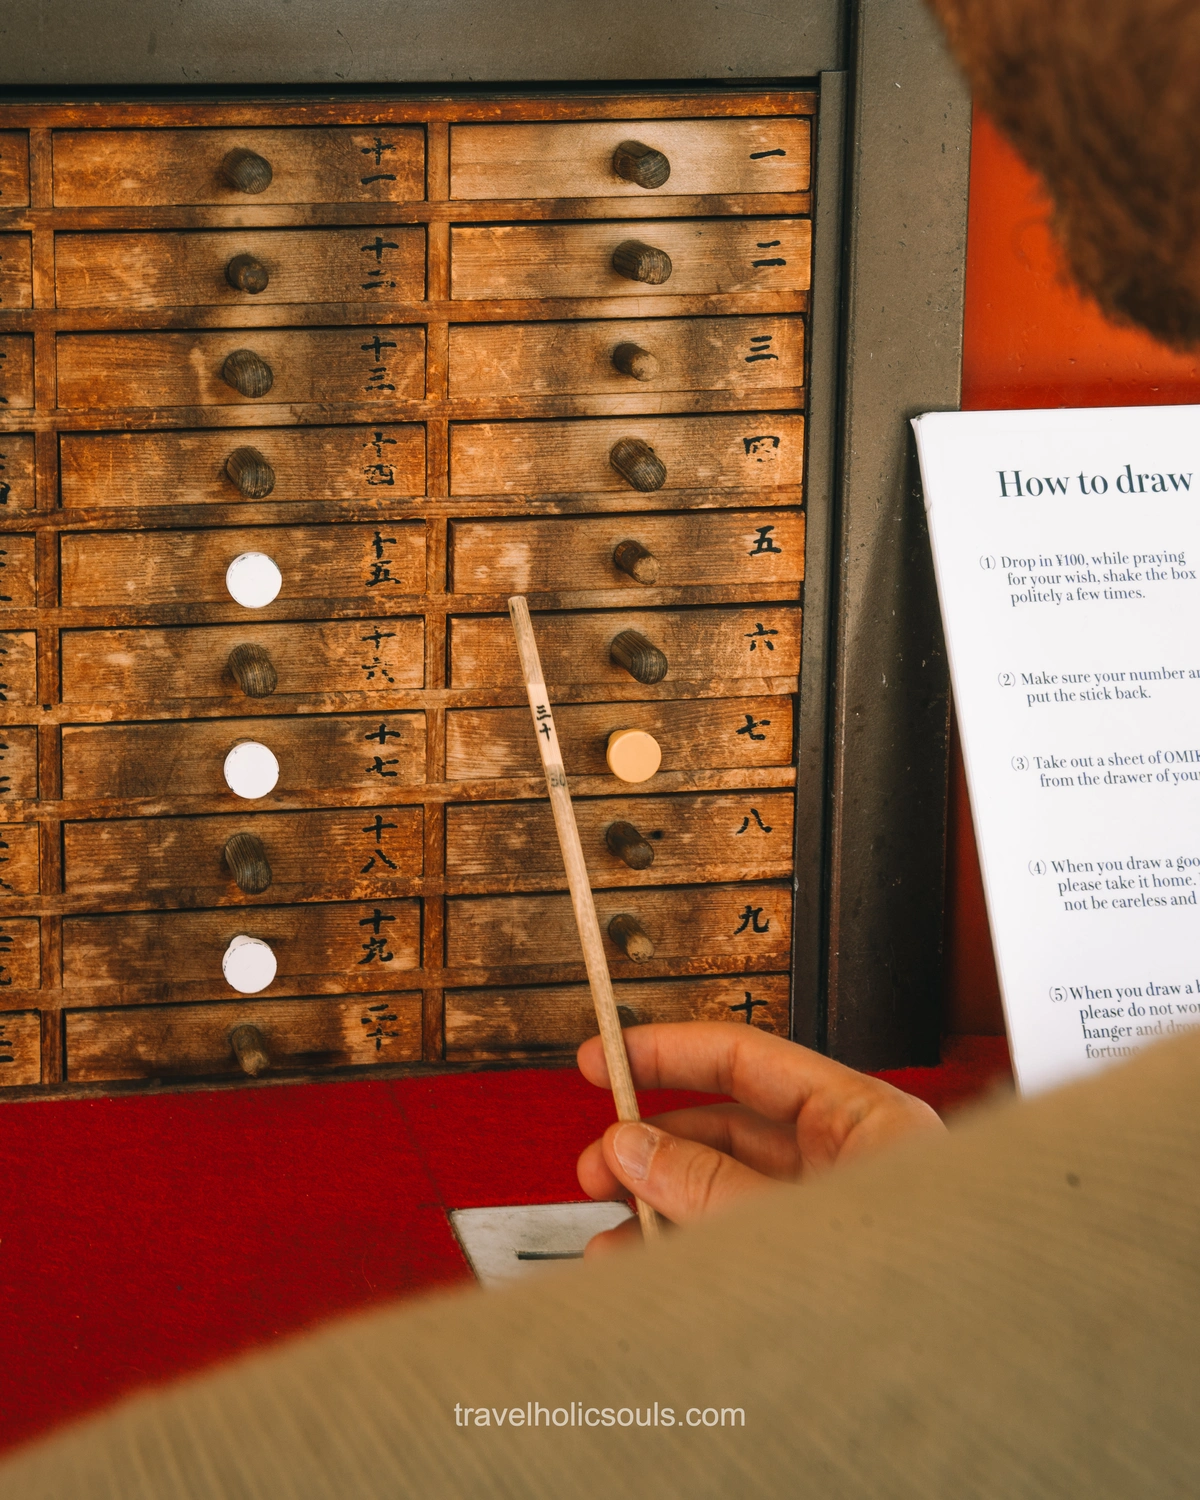 一
二
三
四
五
六
七
八
九
十
十一
十二
十三
十四
十五
十六
十七
十八
十九
二十
三十
30
How to draw
(1) Drop in ¥100, while praying
for your wish, shake the box
politely a few times.
(2) Make sure your number
put the stick back.
(3) Take out a sheet of
from the drawer of
(4) When you draw a
please take it home.
not be careless and
(5) When you draw a
please do not
hanger and
fortune
travelholicsouls.com